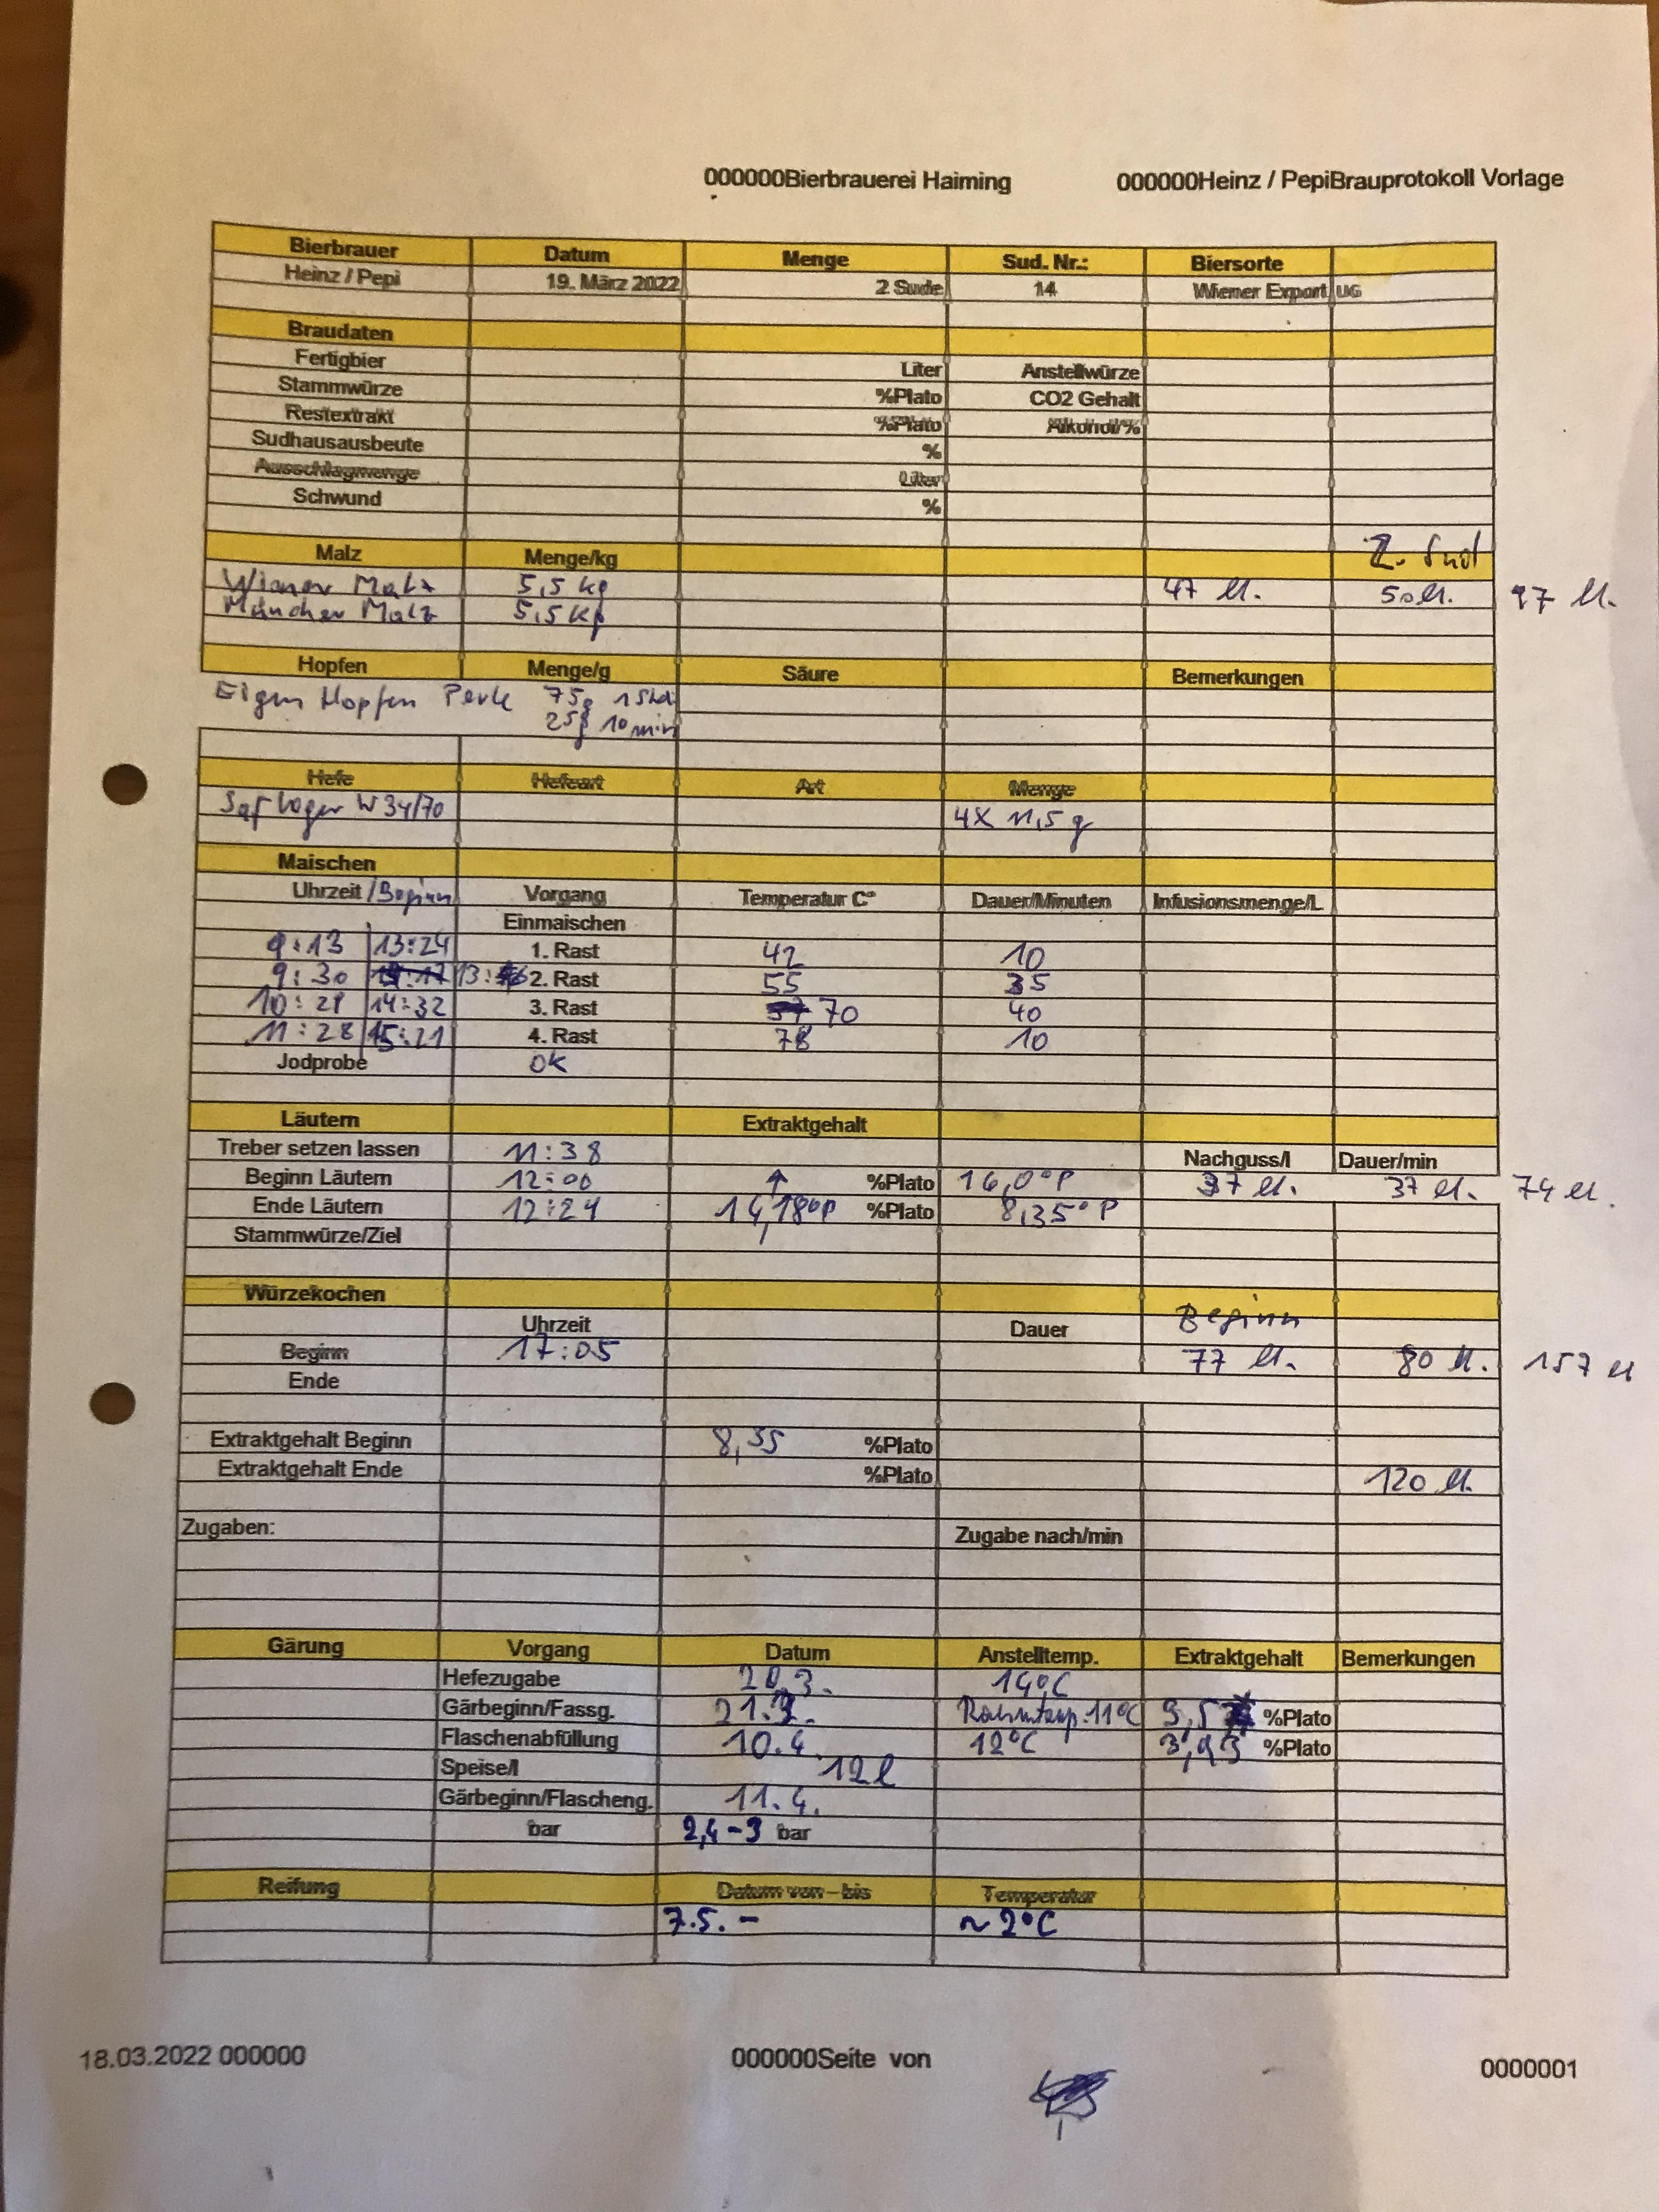 000000Bierbrauerei Haiming 000000Heinz / PepiBrauprotokoll Vorlage
Bierbrauer Datum Menge Sud. Nr.: Biersorte
Heinz / Pepi 19. März 2022 2 Sude 14 Wiener Export UG
Braudaten
Fertigbier Liter Anstellwürze
Stammwürze %Plato CO2 Gehalt
Restextrakt %Plato Alkohol/%
Sudhausausbeute %
Ausschlagmenge Liter
Schwund %
2. Sud
Malz Menge/kg
Wiener Malz 5,5 kg 47 lt. 50 lt. 97 lt.
Müncher Malz 5,5 kg
Hopfen Menge/g Säure Bemerkungen
Eigen Hopfen Perle 75g 1 Std
25g 10 min
Hefe Hefeart Art Menge
Saf lager W 34/70 4X 11,5 g
Maischen
Uhrzeit /Beginn Vorgang Temperatur C° Dauer/Minuten Infusionsmenge/L
Einmaischen
9:13 13:24 1. Rast 42 10
9:30 2. Rast 55 35
14:32 3. Rast 70 40
11:28 15:21 4. Rast 78 10
Jodprobe ok
Läutern Extraktgehalt
Treber setzen lassen 11:38 Nachguss/l Dauer/min
Beginn Läutern 12:00 ↑ %Plato 16,0°P 37 lt. 37 lt. 74 lt.
Ende Läutern 12:24 14,18°P %Plato 8,35°P
Stammwürze/Ziel
Würzekochen
Uhrzeit Dauer Beginn
Beginn 17:05 77 lt. 80 lt. 157 lt
Ende
Extraktgehalt Beginn 8,35 %Plato
Extraktgehalt Ende %Plato 120 lt.
Zugaben: Zugabe nach/min
Gärung Vorgang Datum Anstelltemp. Extraktgehalt Bemerkungen
Hefezugabe 20.3. 14°C
Gärbeginn/Fassg. 21.3. Raumtemp. 11°C %Plato
Flaschenabfüllung 10.4. 12°C %Plato
Speise/l 12l
Gärbeginn/Flascheng. 11.4.
bar 2,4-3 bar
Reifung Datum von – bis Temperatur
7.5. - ~ 2°C
18.03.2022 000000 000000Seite von 0000001